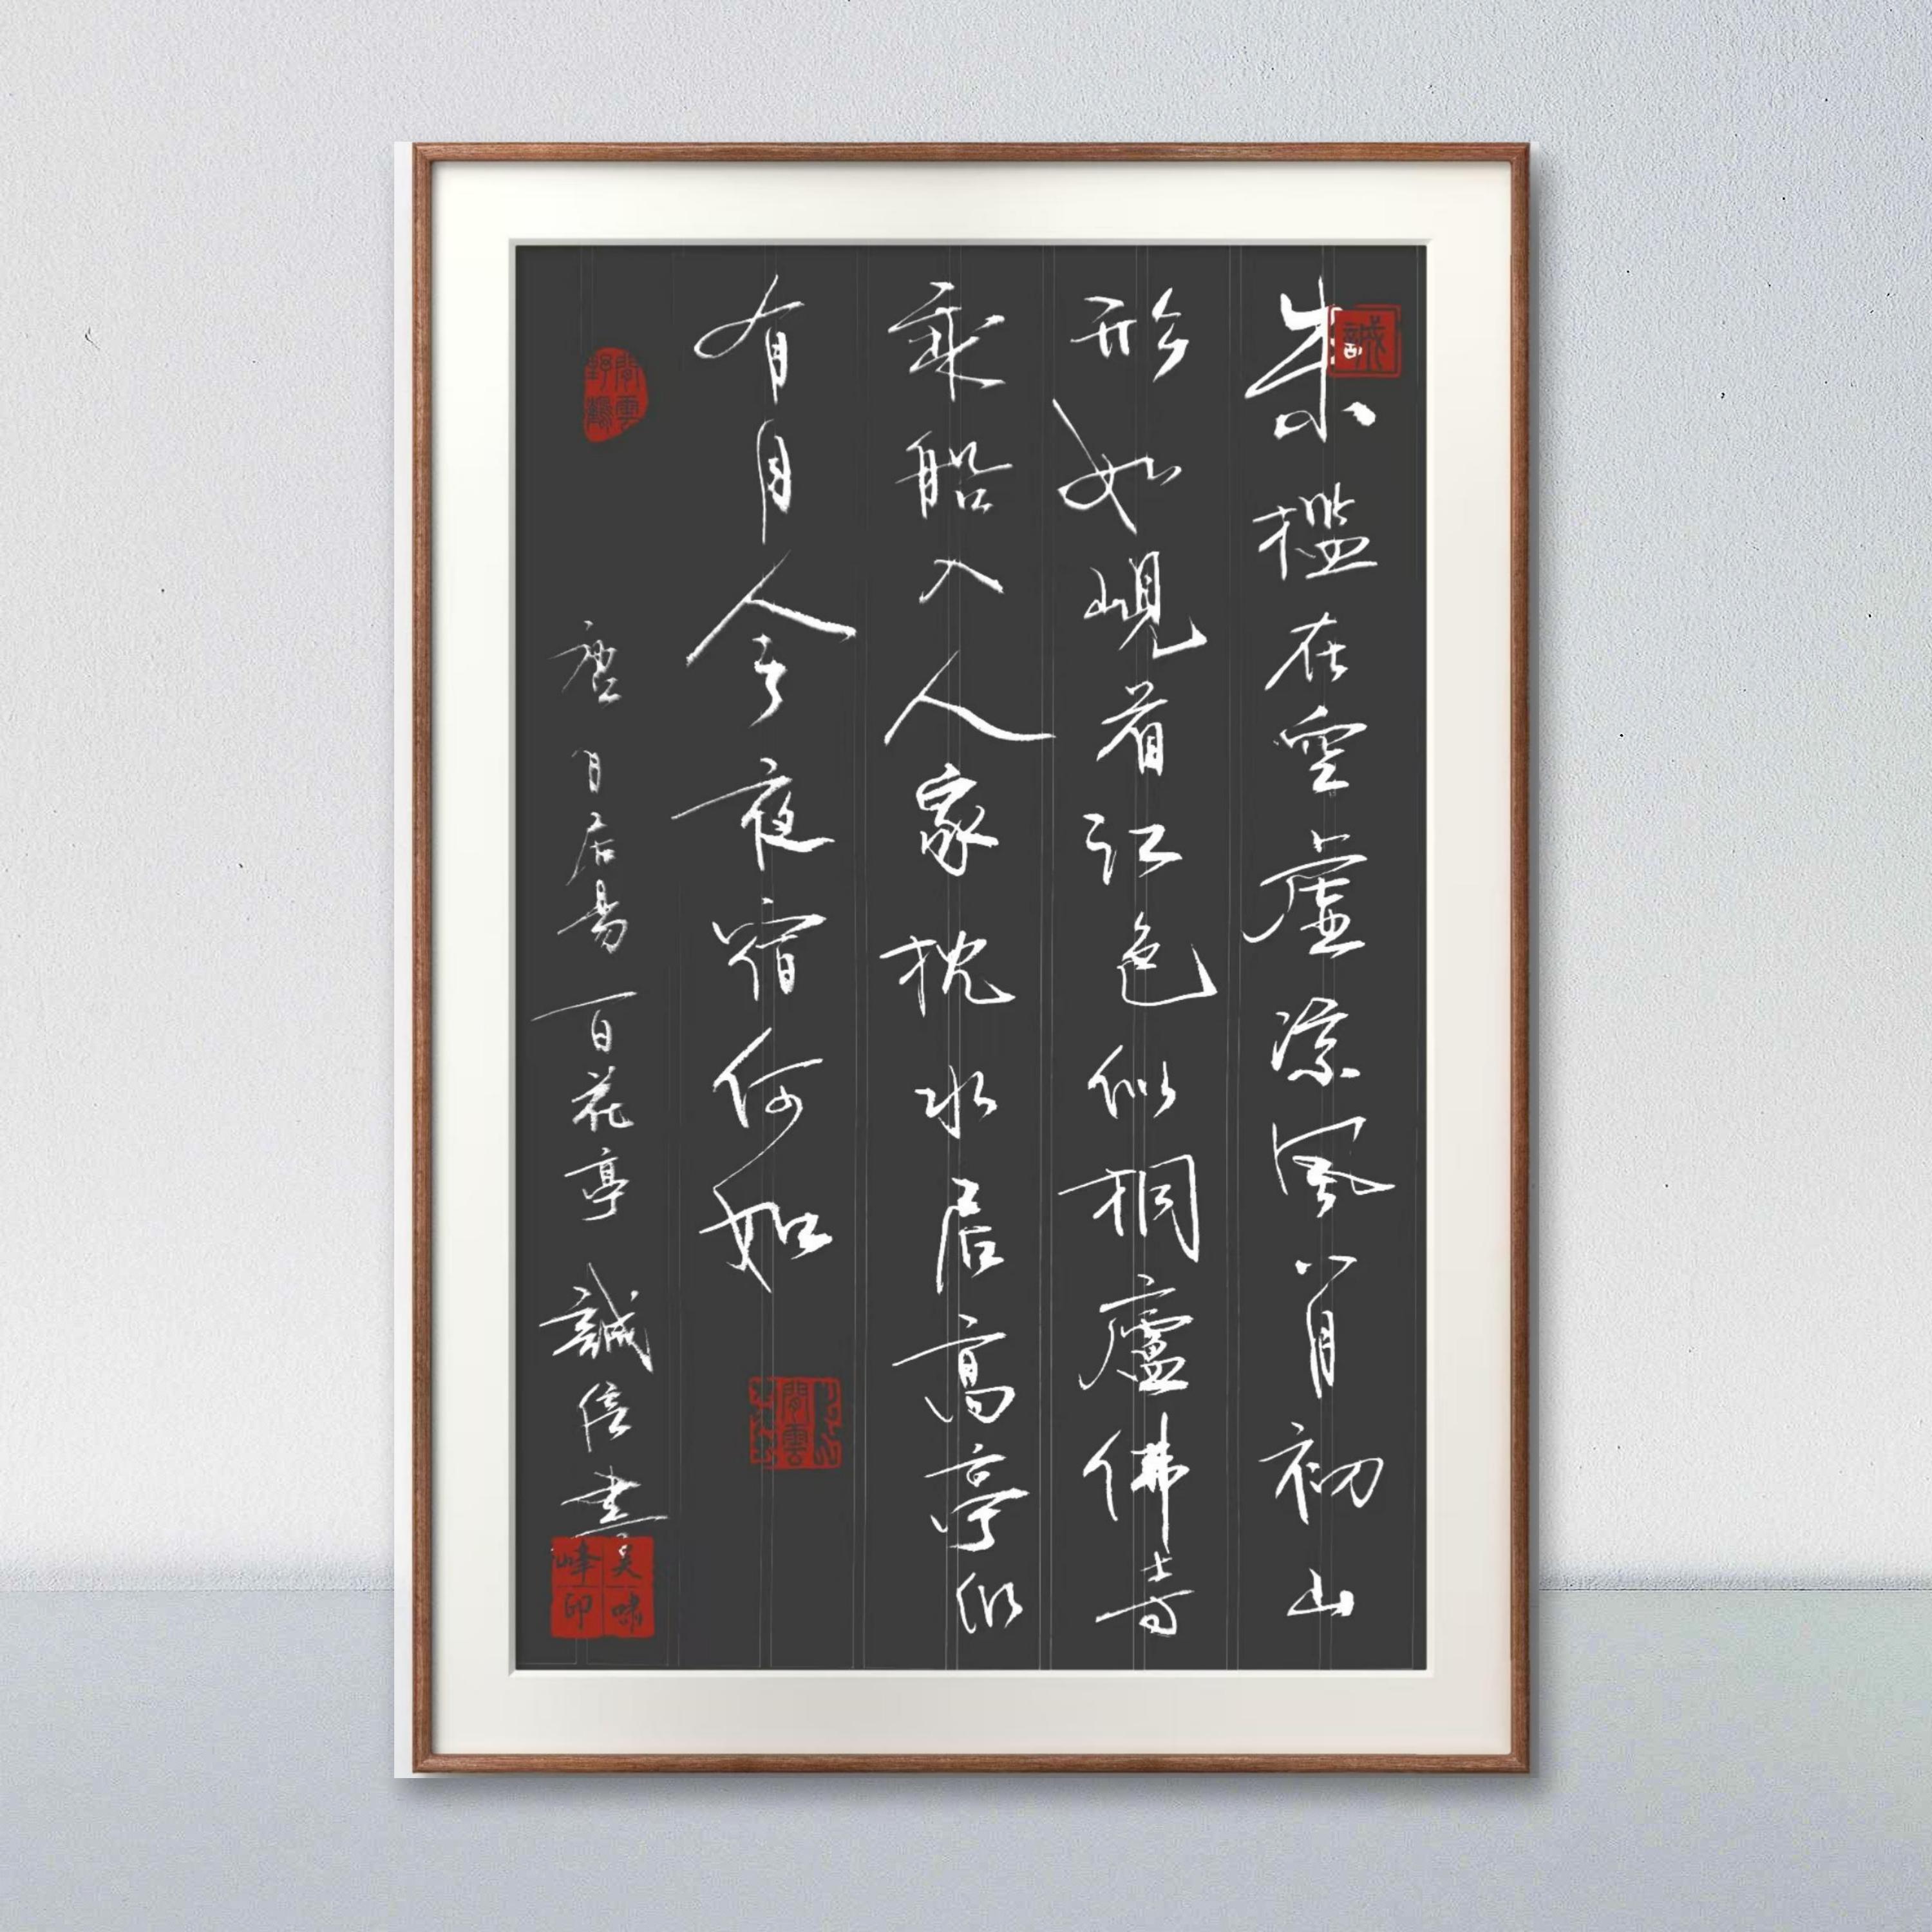 朱檻在空虛涼風八月初山
形如峴首江色似桐廬佛寺
乘船入人家枕水居高亭仍
有月今夜宿何如
唐 白居易 百花亭 誠信書
誠
閒雲野鶴
閒雲
吳啸峰印